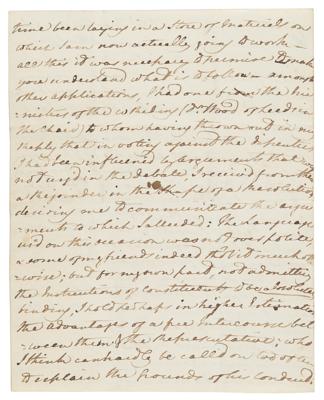 time been laying in a Store of Materials on
which I am now actually going to work —
all this it was necessary to premise to make
you understand what is to follow — amongst
other applications, I had one from the
of the (Dr Wood of Leeds in
the Chair) to whom having thrown out in my
reply that in voting against the
I had been influenced by arguments that
not urged in the debate, I received from them
a Rejoinder in the Shape of a Resolution
desiring me to communicate the argu-
ments to which I alluded: The Language
used on this occasion was not over polite,
& some of my friends indeed thot it much other-
wise; but for my own part, not admitting
the Instructions of Constituents to be absolutely
binding, I hold perhaps in higher Estimation
the advantages of a free intercourse bet-
ween them & the Representative; who
I think can hardly be called on too often
to explain the Grounds of his conduct.